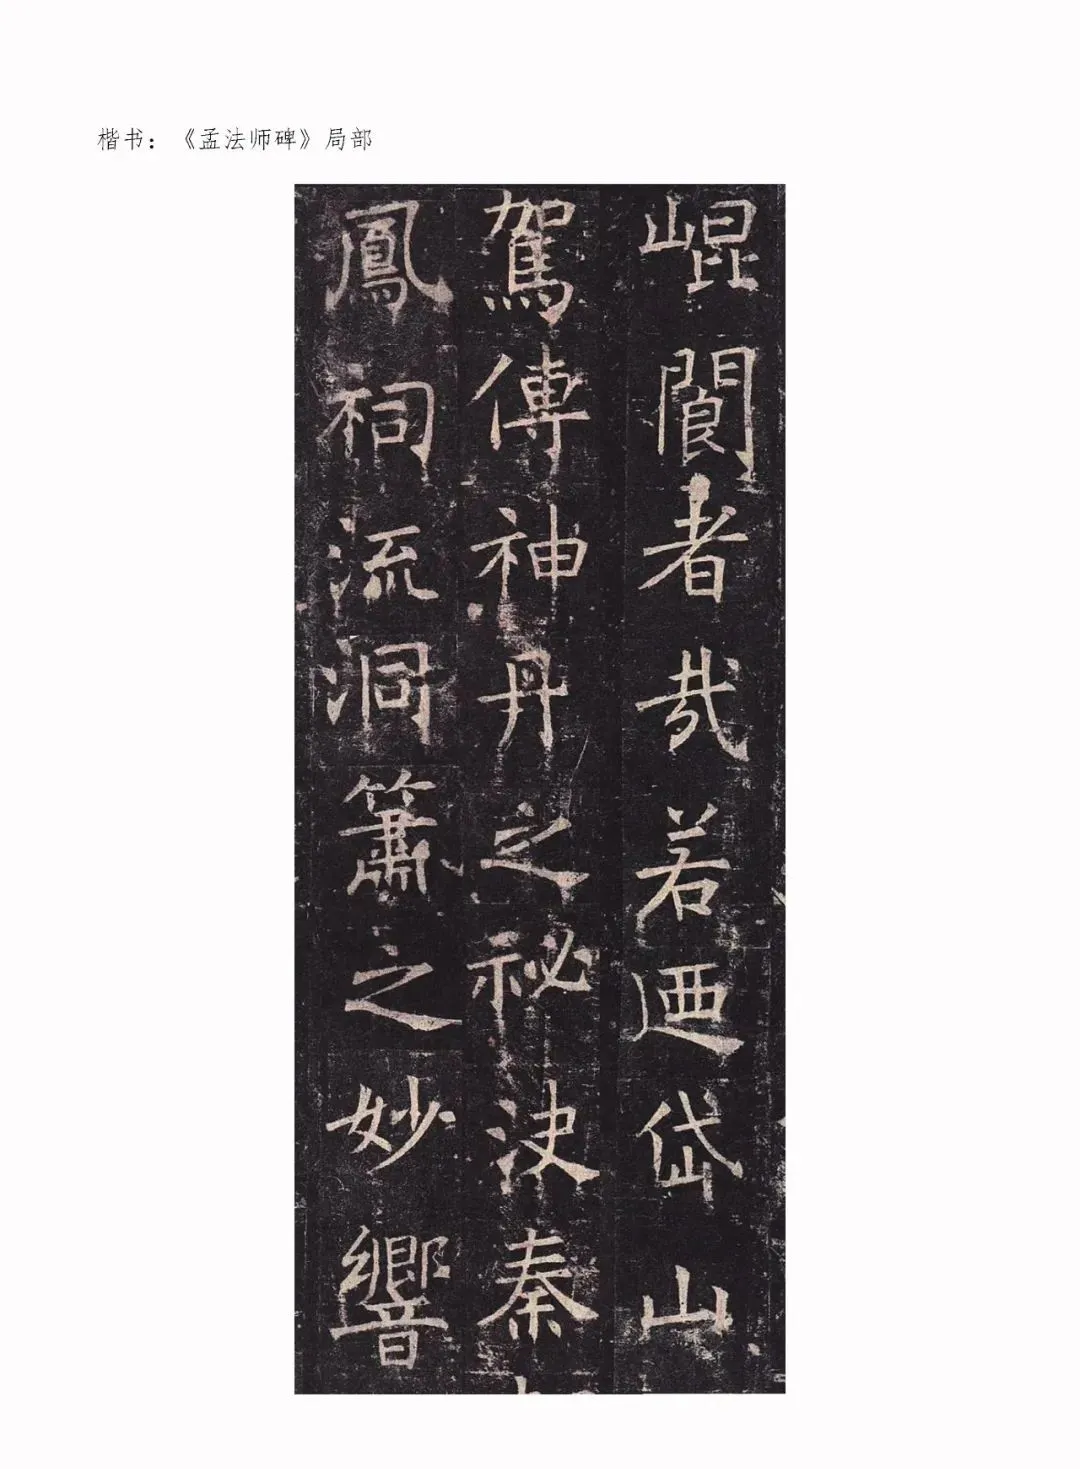 楷书：《孟法师碑》局部
崐阆者哉若迺岱山
駕傳神丹之祕決秦
鳳祠流洞簫之妙響